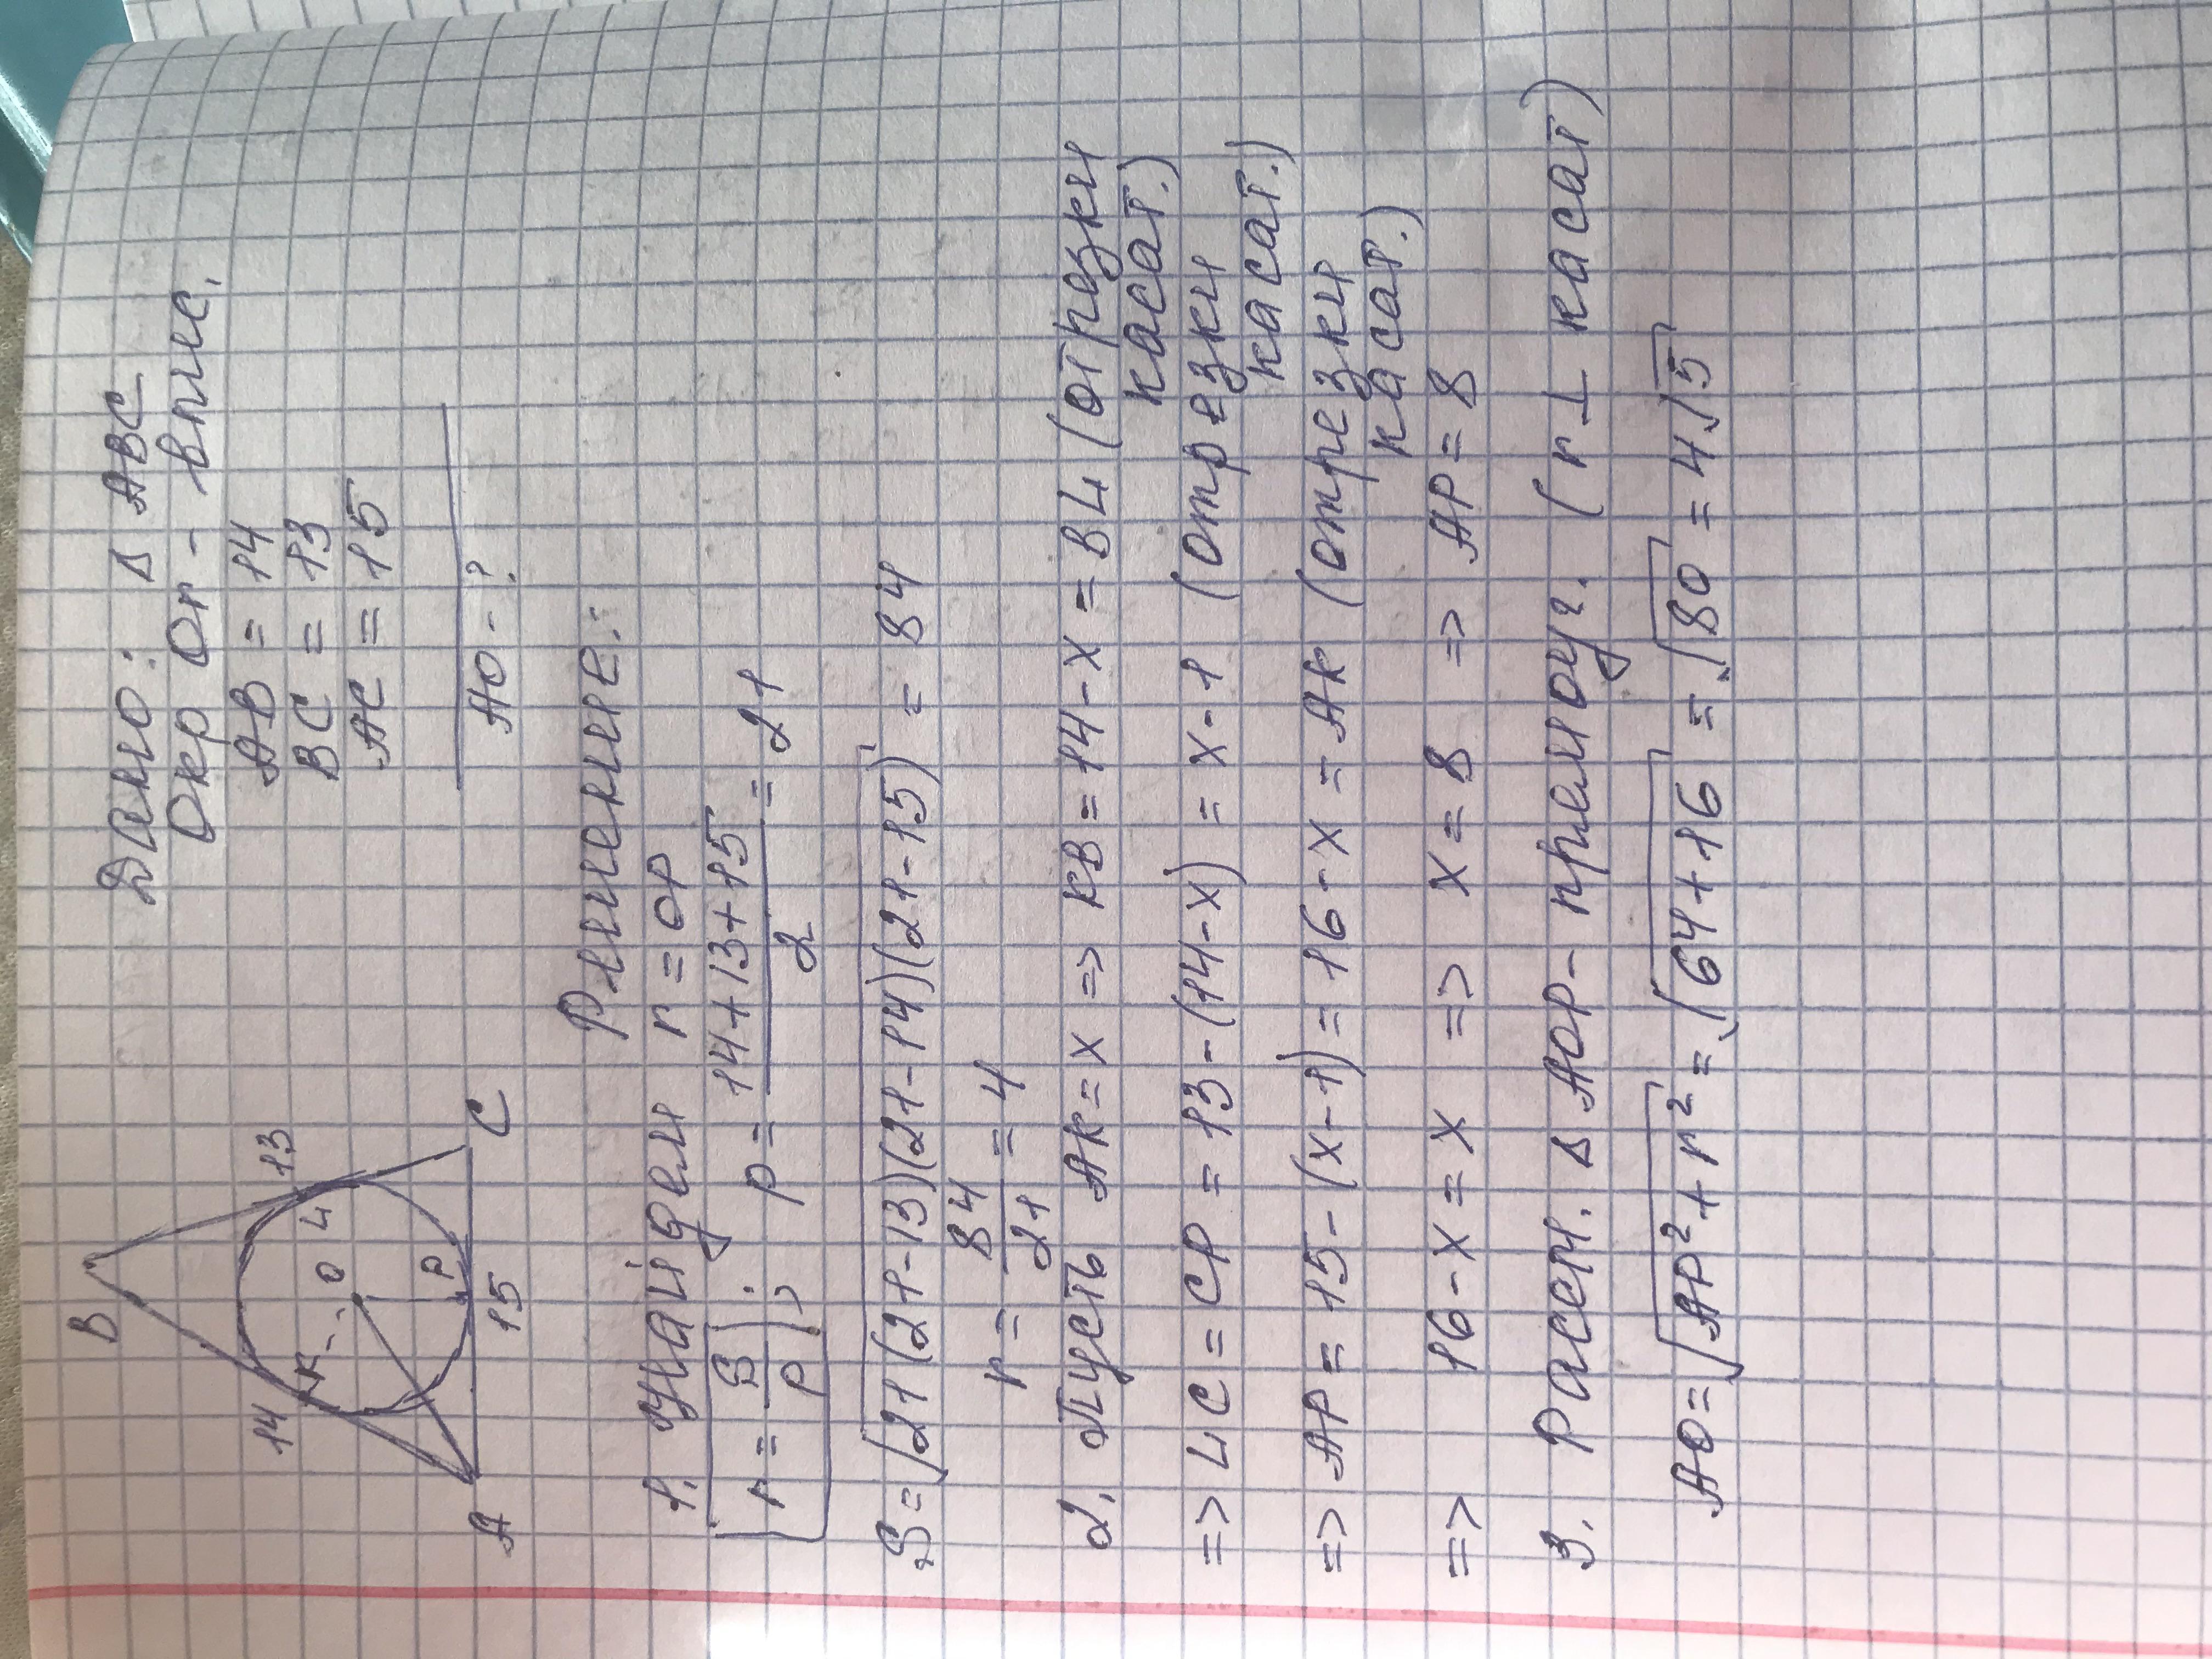 B
14
13
K
O
L
P
A
15
C
Дано: Δ ABC
Окр Or - впис.
AB = 14
BC = 13
AC = 15
AO - ?
Решение:
1. Найдем r = OP
r = S/p ; p = (14+13+15)/2 = 21
S = √(21(21-13)(21-14)(21-15)) = 84
r = 84/21 = 4
2. Пусть AK = x => KB = 14 - x = BL (отрезки
касат.)
=> LC = CP = 13 - (14 - x) = x - 1 (отрезки
касат.)
=> AP = 15 - (x - 1) = 16 - x = AK (отрезки
касат.)
=> 16 - x = x => x = 8 => AP = 8
3. Рассм. Δ AOP - прямоуг. (r ⊥ касат)
AO = √(AP² + r²) = √(64 + 16) = √80 = 4√5